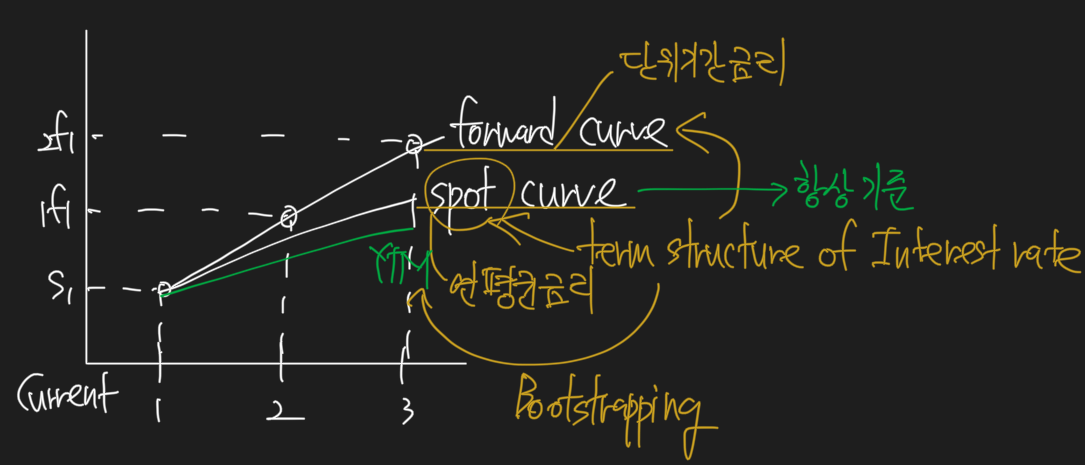 단위기간금리
2f1
forward curve
1f1
spot curve
항상기준
term structure of Interest rate
S1
YTM
연평균금리
Current
1
2
3
Bootstrapping